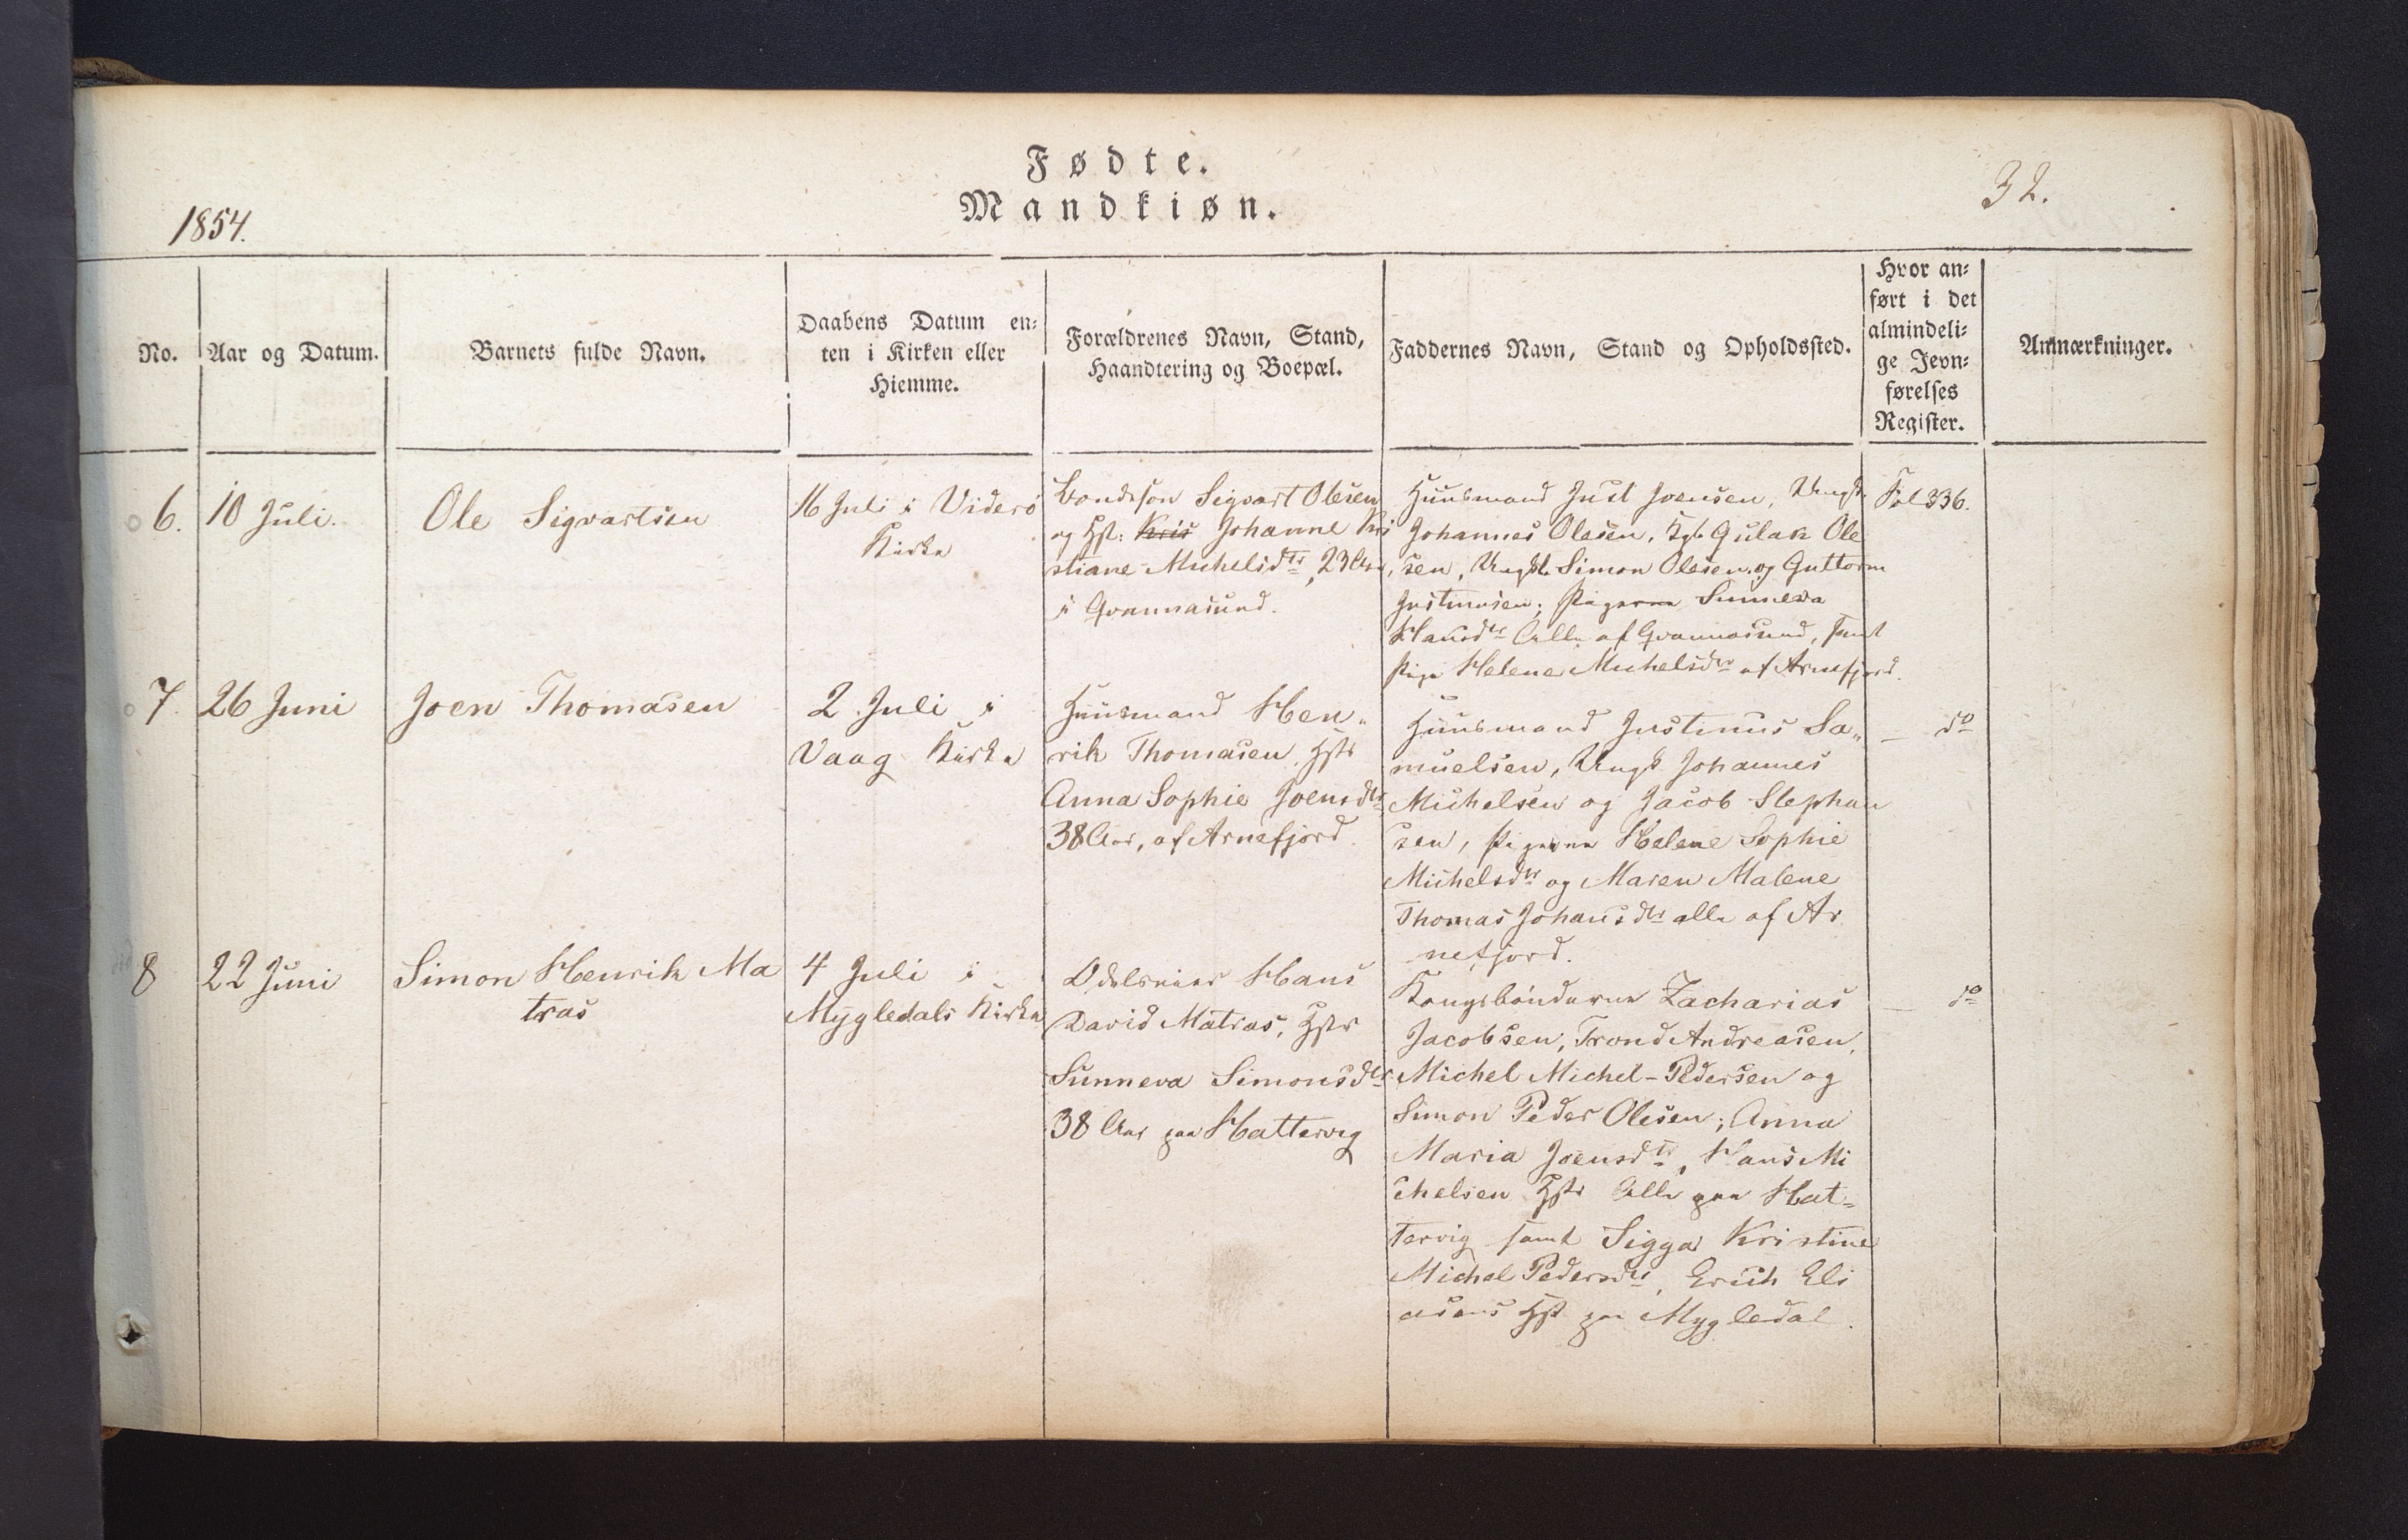 Fødte.
Mandkiøn.
32.
1854.
No.
Aar og Datum.
Barnets fulde Navn.
Daabens Datum en-
ten i Kirken eller
Hiemme.
Forældrenes Navn, Stand,
Haandtering og Boepæl.
Faddernes Navn, Stand og Opholdssted.
Hvor an-
ført i det
almindeli-
ge Jevn-
førelses
Register.
Anmærkninger.
6.
10 Juli.
Ole Sigvartsen
16 Juli i Viderö
Kirke
Bondesøn Sigvart Olesen
og Hst: Kris Johanne Kri
stiane Michelsdtr, 23 Aar
i Qvannasund.
Huusmand Just Joensen, Ungk.
Johannes Olesen, Kgb. Gulak Ole
sen, Ungk. Simon Olesen og Guttorm
Justinusen; Pigerne Sunneva
Hansdtr Alle af Qvannasund, samt
Pige Helene Michelsdtr af Arnefjord.
Fol 336.
7.
26 Juni
Joen Thomasen
2 Juli i
Vaag Kirke
Huusmand Hen„
rik Thomasen, Hstr
Anna Sophie Joensdtr
38 Aar, af Arnefjord.
Huusmand Justinus Sa„
muelsen, Ungk. Johannes
Michelsen og Jacob Stephan
sen, Pigerne Helene Sophie
Michelsdtr og Maren Malene
Thomas Johansdtr alle af Ar
nefjord.
— do
8
22 Juni
Simon Henrik Ma
tras
4 Juli i
Mygledals Kirke
Odelseier Hans
David Matras, Hstr
Sunneva Simonsdtr
38 Aar paa Hattervig
Kongsbönderne Zacharias
Jacobsen, Trond Andreasen,
Michel Michel-Pedersen og
Simon Peder Olesen; Anna
Maria Joensdtr, Hans Mi
chelsen Hstr Alle paa Hat-
tervig samt Sigga Kristine
Michel Pedersdtr, Erich Eli
asens Hst paa Mygledal.
— do